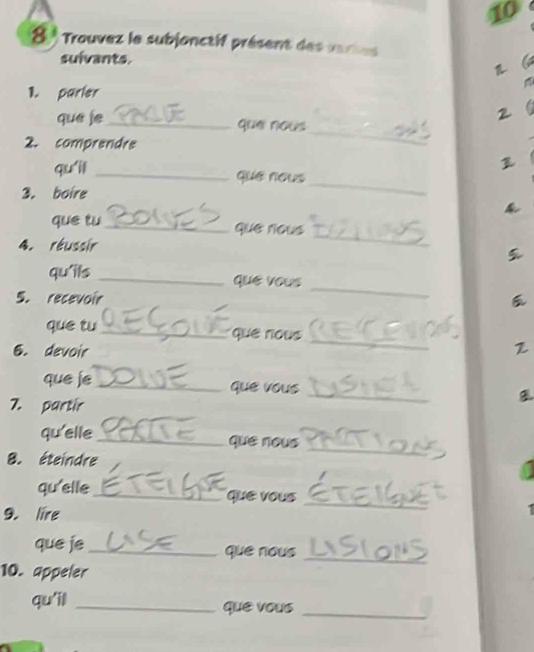 10
8 Trouvez le subjonctif présent des
suivants.
1. parler
que je PARLE que nous
2. comprendre
qu'il ______ que nous ______
3. boire
que tu BOIVES que nous
4. réussir
qu'ils ______ que vous ______
5. recevoir
que tu REÇOIVE que nous RECEVIONS
6. devoir
que je DOIVE que vous
7. partir
qu'elle PARTE que nous PARTIONS
8. éteindre
qu'elle ÉTEIGNE que vous
9. lire
que je LISE que nous LISIONS
10. appeler
qu'il ______ que vous ______